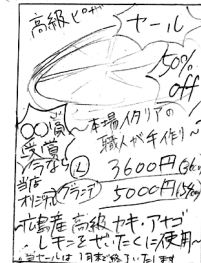 高級ピザ
セール
50%
off
〇〇賞
受賞
〜本場イタリアの
職人が手作り〜
今なら
Ⓛ 3600円
当店
オリジナル グランデ 5000円
〜広島産高級カキ・アナゴ
レモンをぜいたくに使用〜
※当セールは1月末で終了いたします